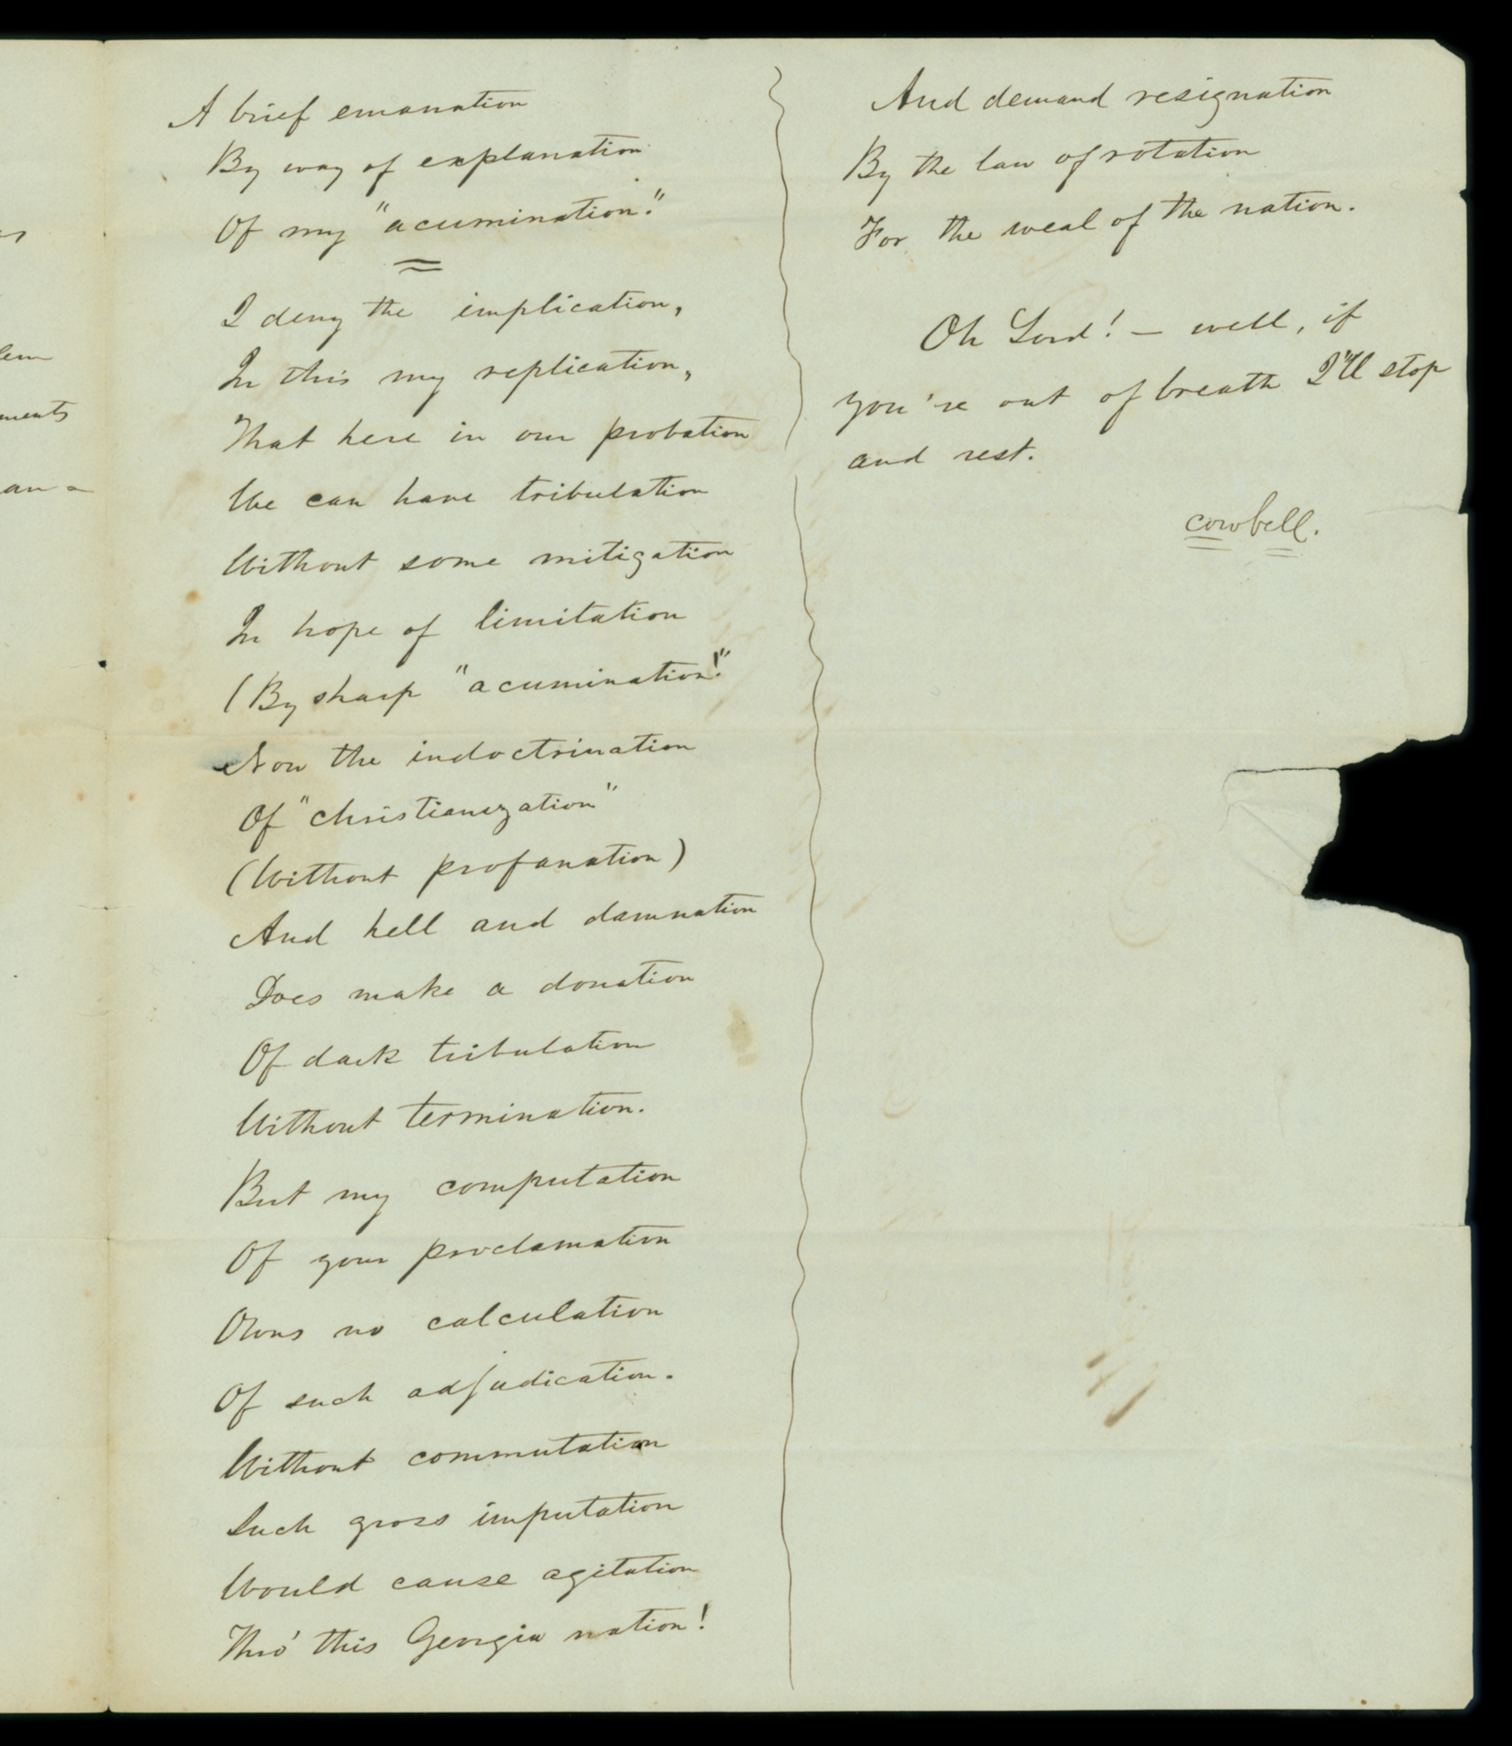 A brief emanation
By way of explanation
Of my "acumination."
I deny the implication,
In this my replication,
That here in our probation
We can have tribulation
Without some mitigation
In hope of limitation
(By sharp "acumination!"
Now the indoctrination
Of "christianization"
(Without profanation)
And hell and damnation
Does make a donation
Of dark tribulation
Without termination.
But my computation
Of your proclamation
Owns no calculation
Of such adjudication.
Without commutation
Such gross imputation
Would cause agitation
Thro' this Georgia nation!
And demand resignation
By the law of rotation
For the weal of the nation.
Oh Lord! — well, if
you're out of breath I'll stop
and rest.
cowbell.
ments
an a